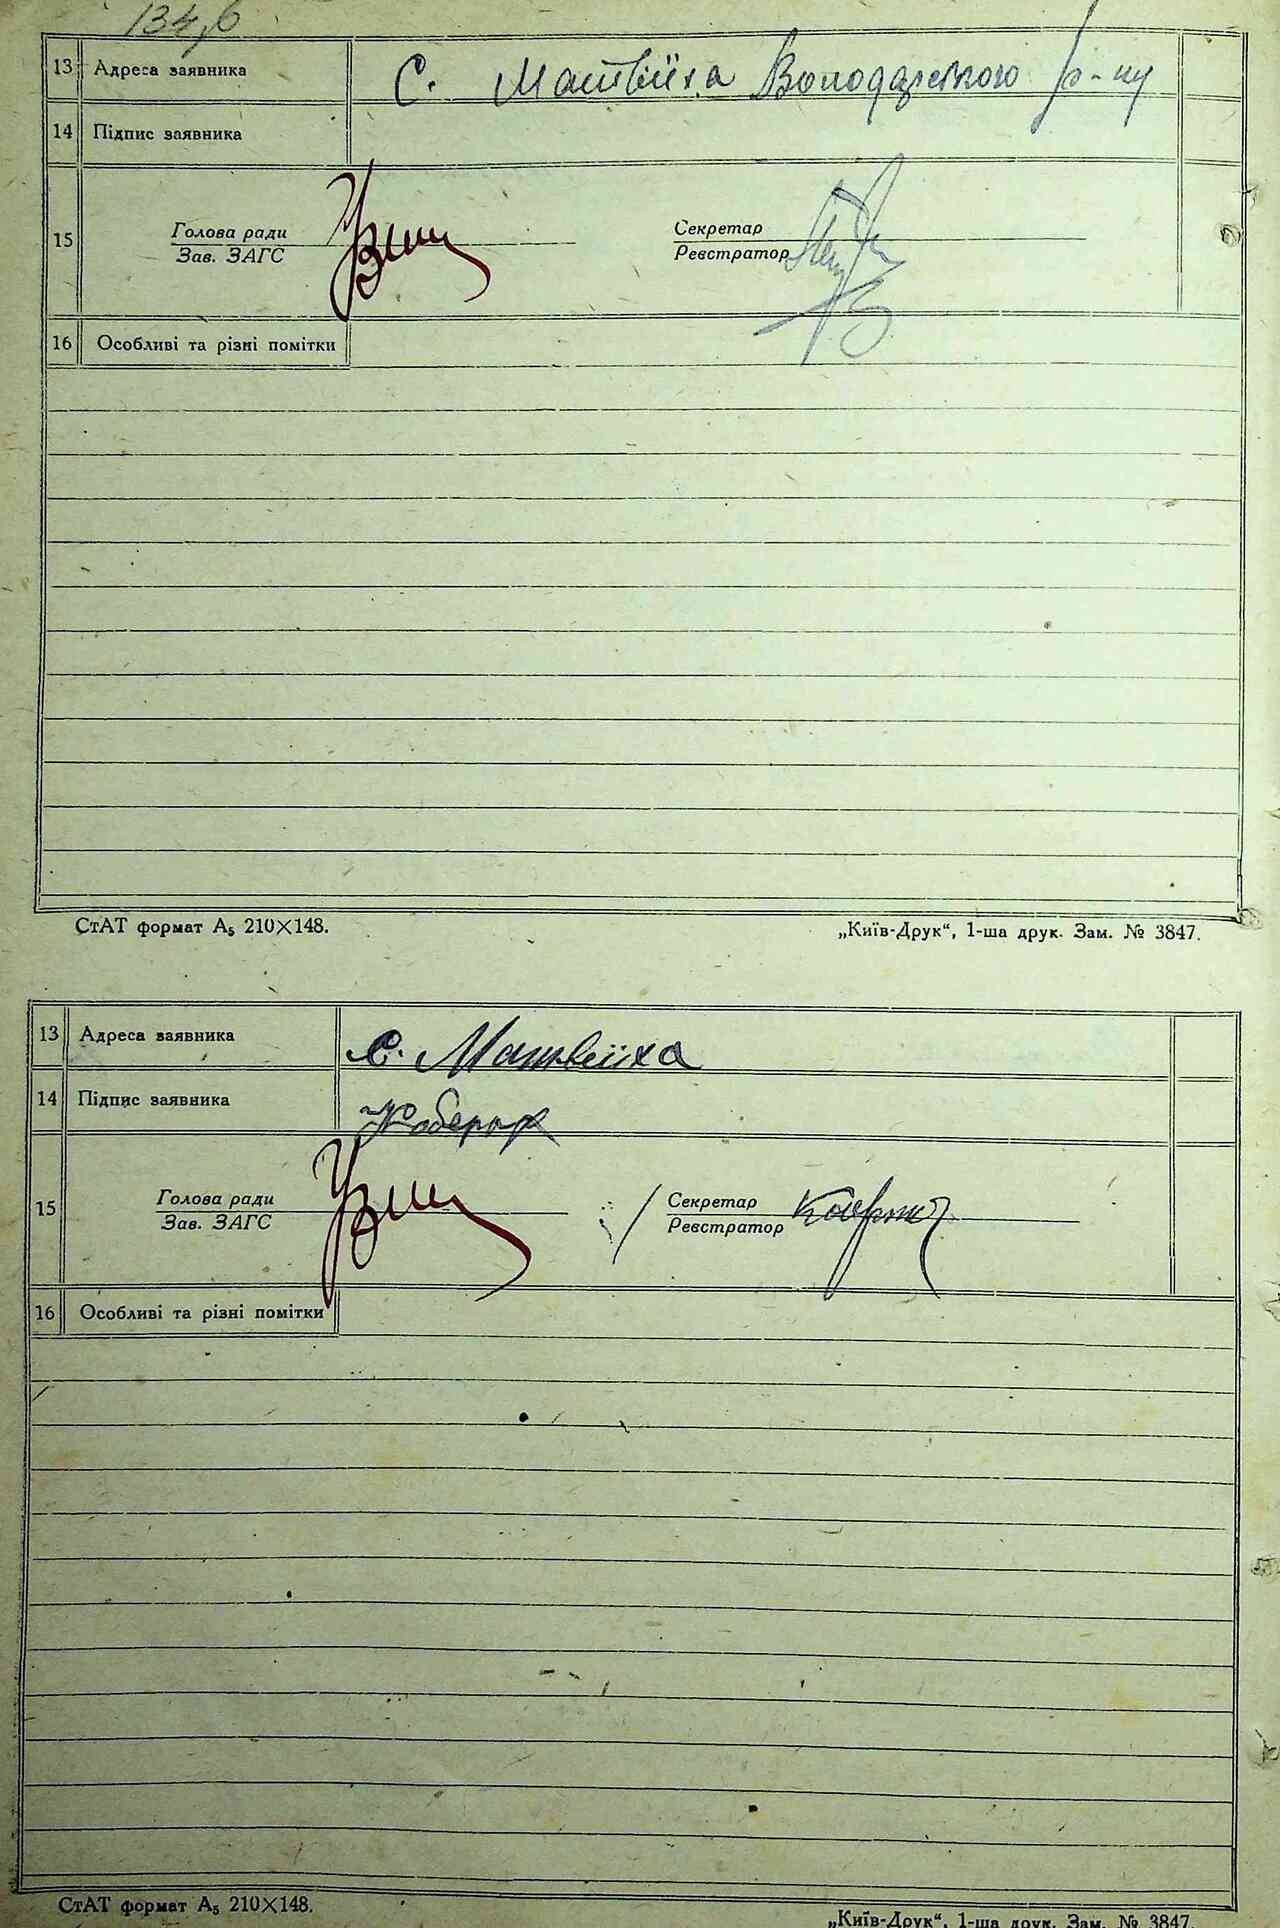 134,б
13 Адреса заявника С. Матвіїха Володарського р-ну
14 Підпис заявника
15 Голова ради Секретар
Зав. ЗАГС Реєстратор
16 Особливі та різні помітки
СтАТ формат А5 210×148. „Київ-Друк“, 1-ша друк. Зам. № 3847.
13 Адреса заявника с. Матвіїха
14 Підпис заявника
15 Голова ради Секретар
Зав. ЗАГС Реєстратор
16 Особливі та різні помітки
СтАТ формат А5 210×148.
„Київ-Друк“, 1-ша друк. Зам. № 3847.